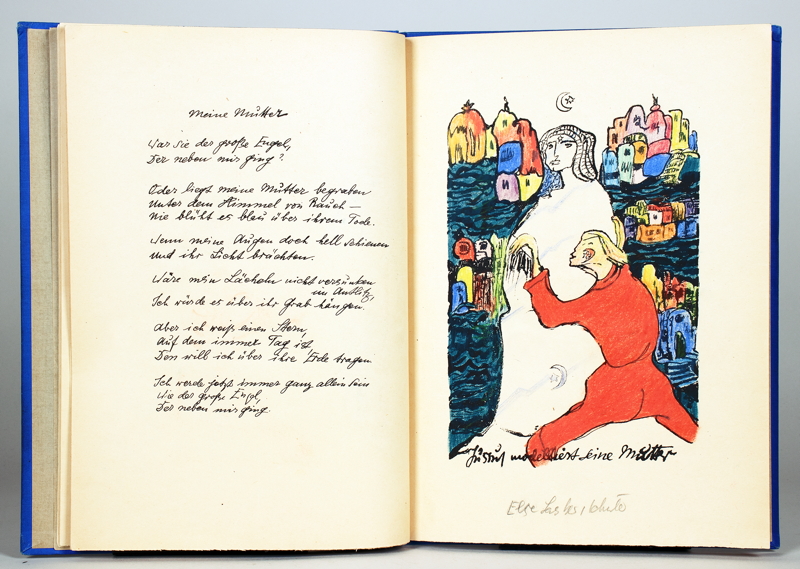 Meine Mutter
War sie der große Engel,
Der neben mir ging?
Oder liegt meine Mutter begraben
Unter dem Himmel von Rauch –
Nie blüht es blau über ihrem Tode.
Wenn meine Augen doch hell schienen
Und ihr Licht brächten.
Wäre mein Lächeln nicht versunken
im Antlitz,
Ich würde es über ihr Grab hängen.
Aber ich weiß einen Stern,
Auf dem immer Tag ist
Den will ich über ihre Erde tragen.
Ich werde jetzt immer ganz allein sein
Wie der große Engel,
Der neben mir ging.
Jussuf modelliert seine Mutter
Else Lasker-Schüler